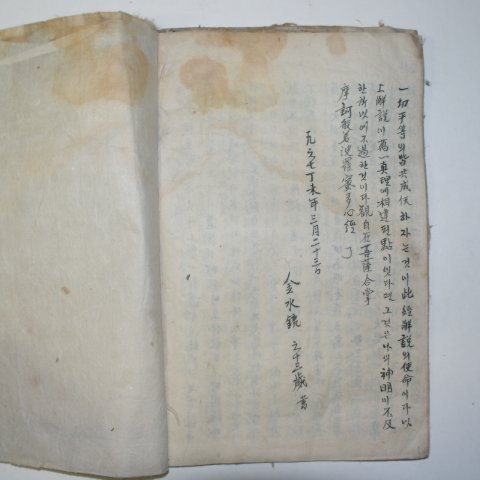 一切平等의皆共成佛하자는것이此經解說의使命이다以
上解說이萬一眞理에相違된點이잇다면그것은나의神明이不及
한所以에不過한것이다觀自在菩薩合掌
摩訶般若波羅蜜多心經 了
一九六七丁未年三月二十三日
金水鏡 六十三歲 書